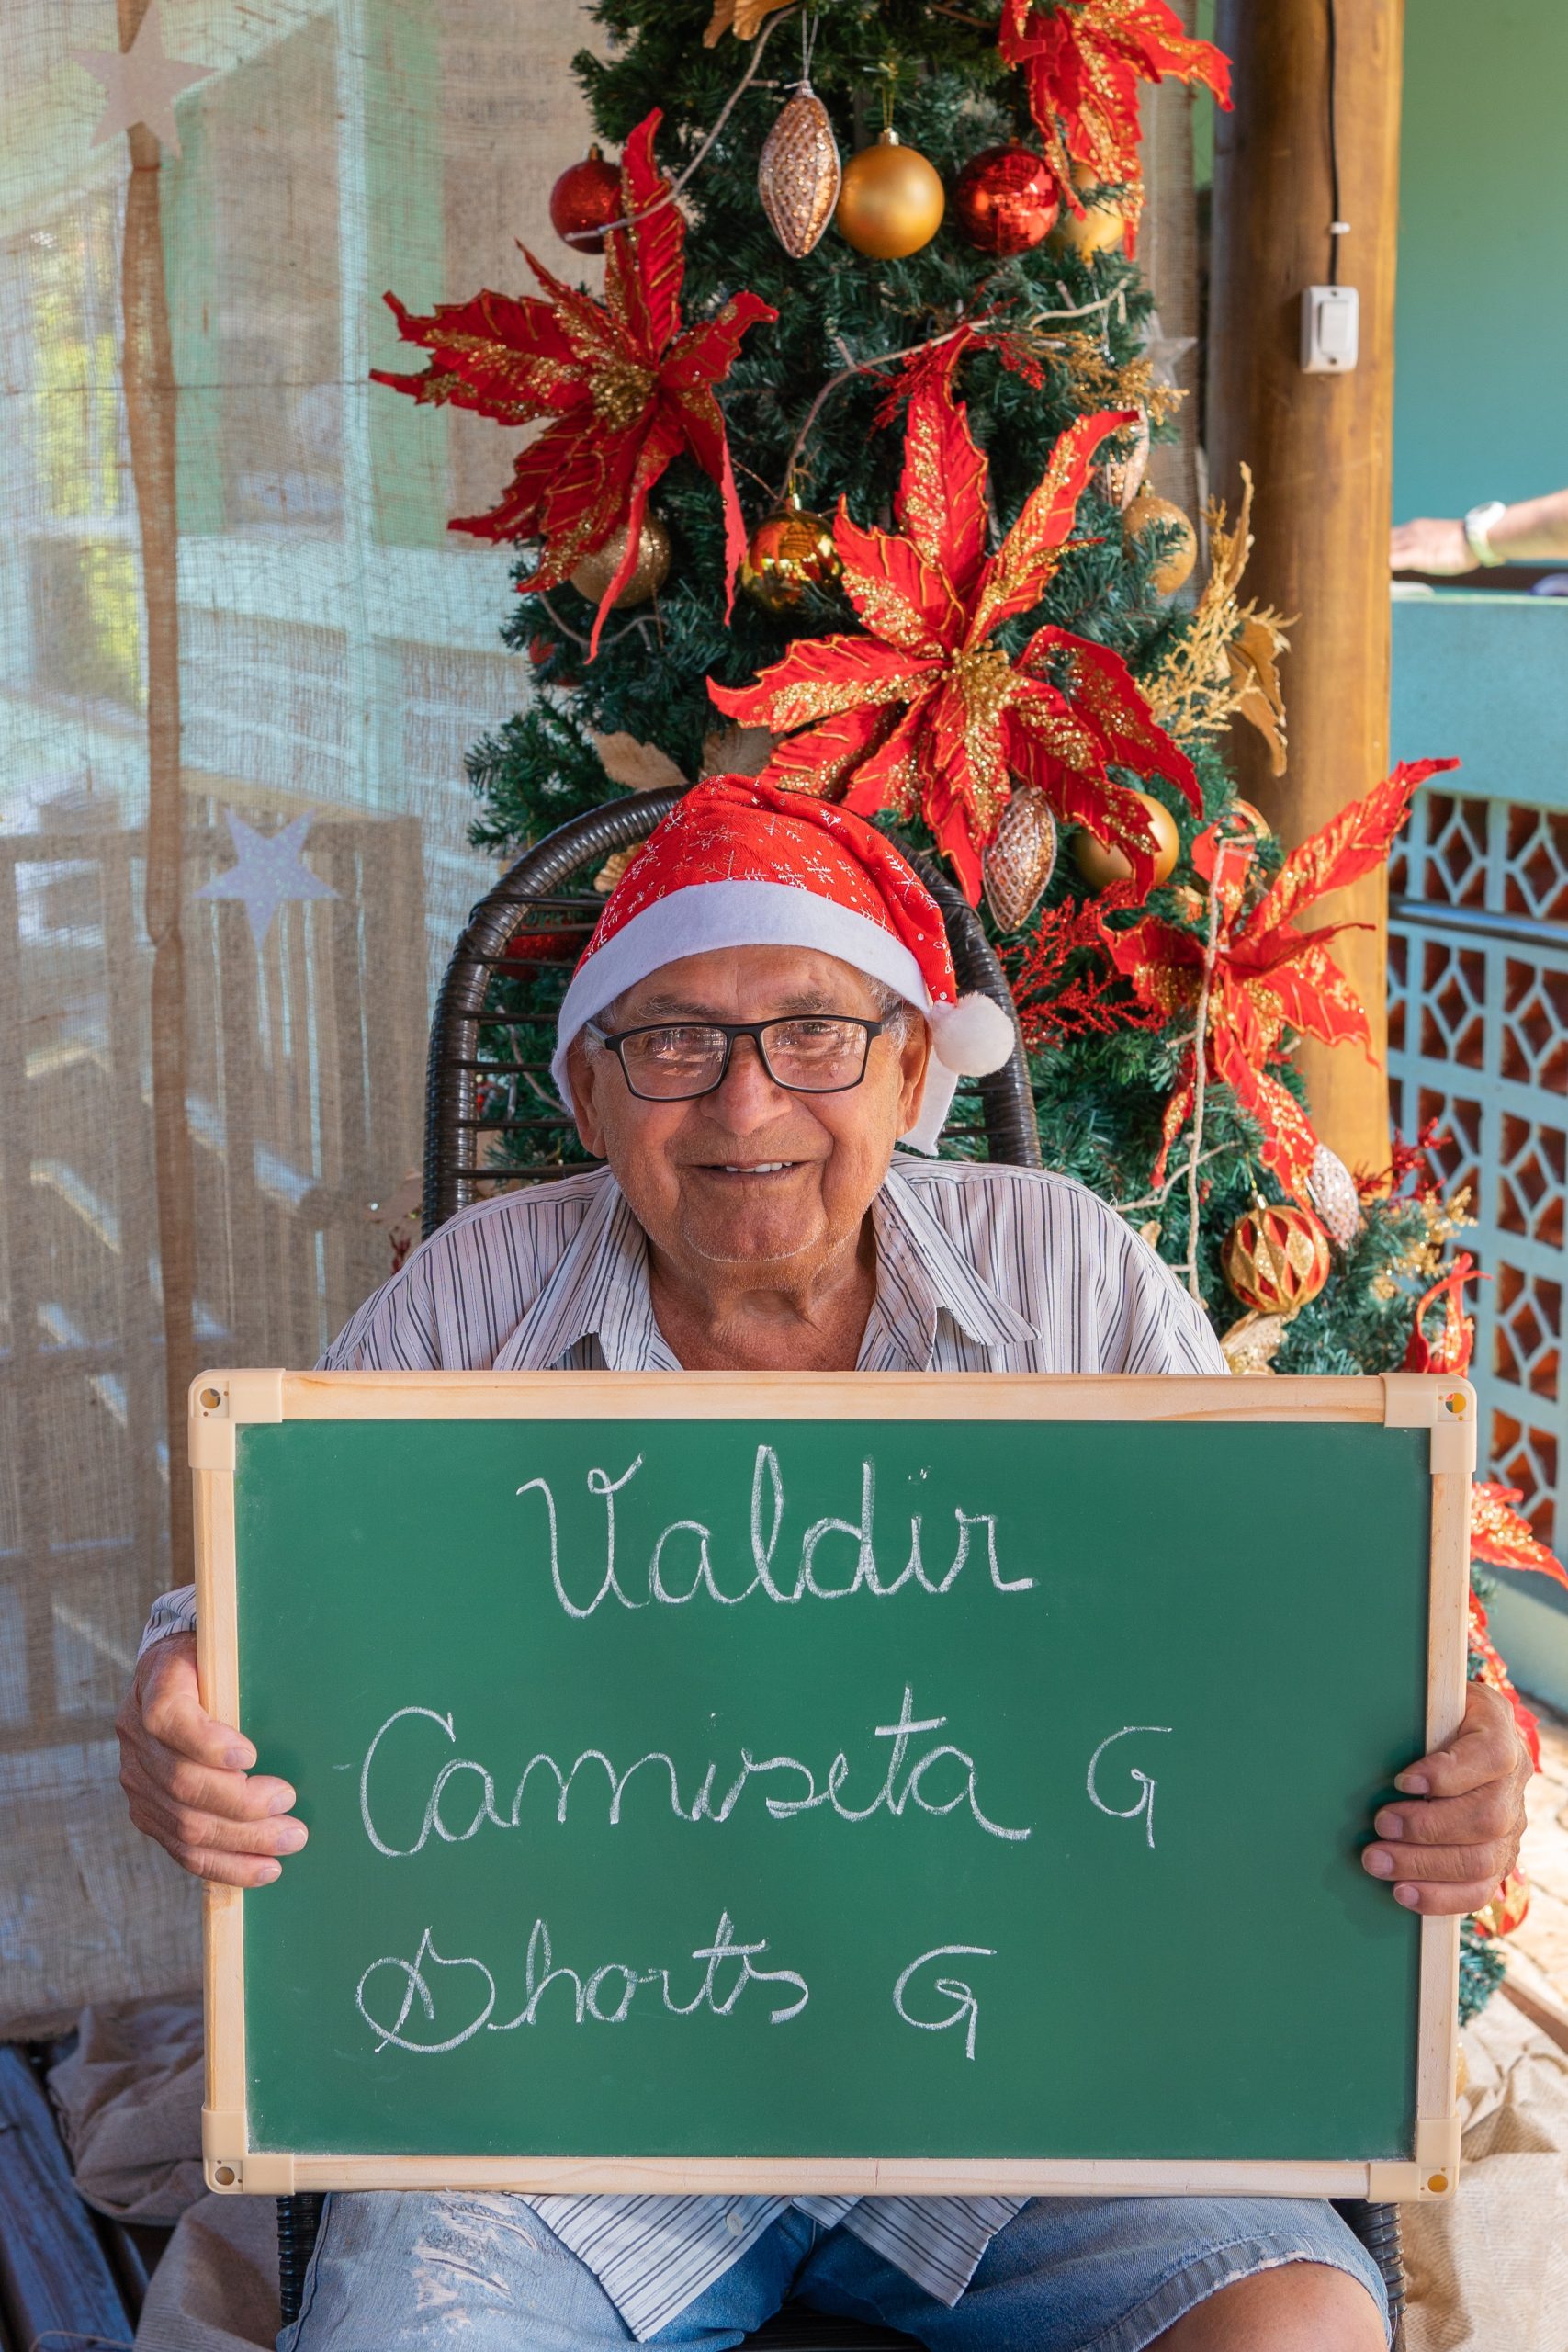 Valdir
Camiseta G
Shorts G